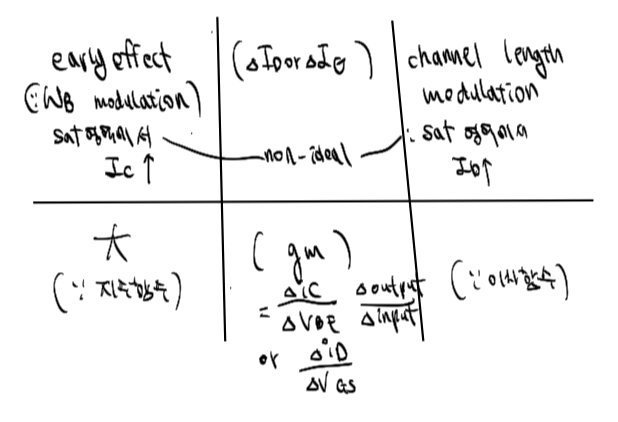 early effect
(∵WB modulation)
sat영역에서
Ic↑
(ΔID or ΔIB)
non-ideal
channel length
modulation
: sat 영역에서
ID↑
大
(∵ 지수함수)
(gm)
= ΔiC/ΔVBE Δoutput/Δinput
or ΔiD/ΔVGS
(∵ 이차함수)